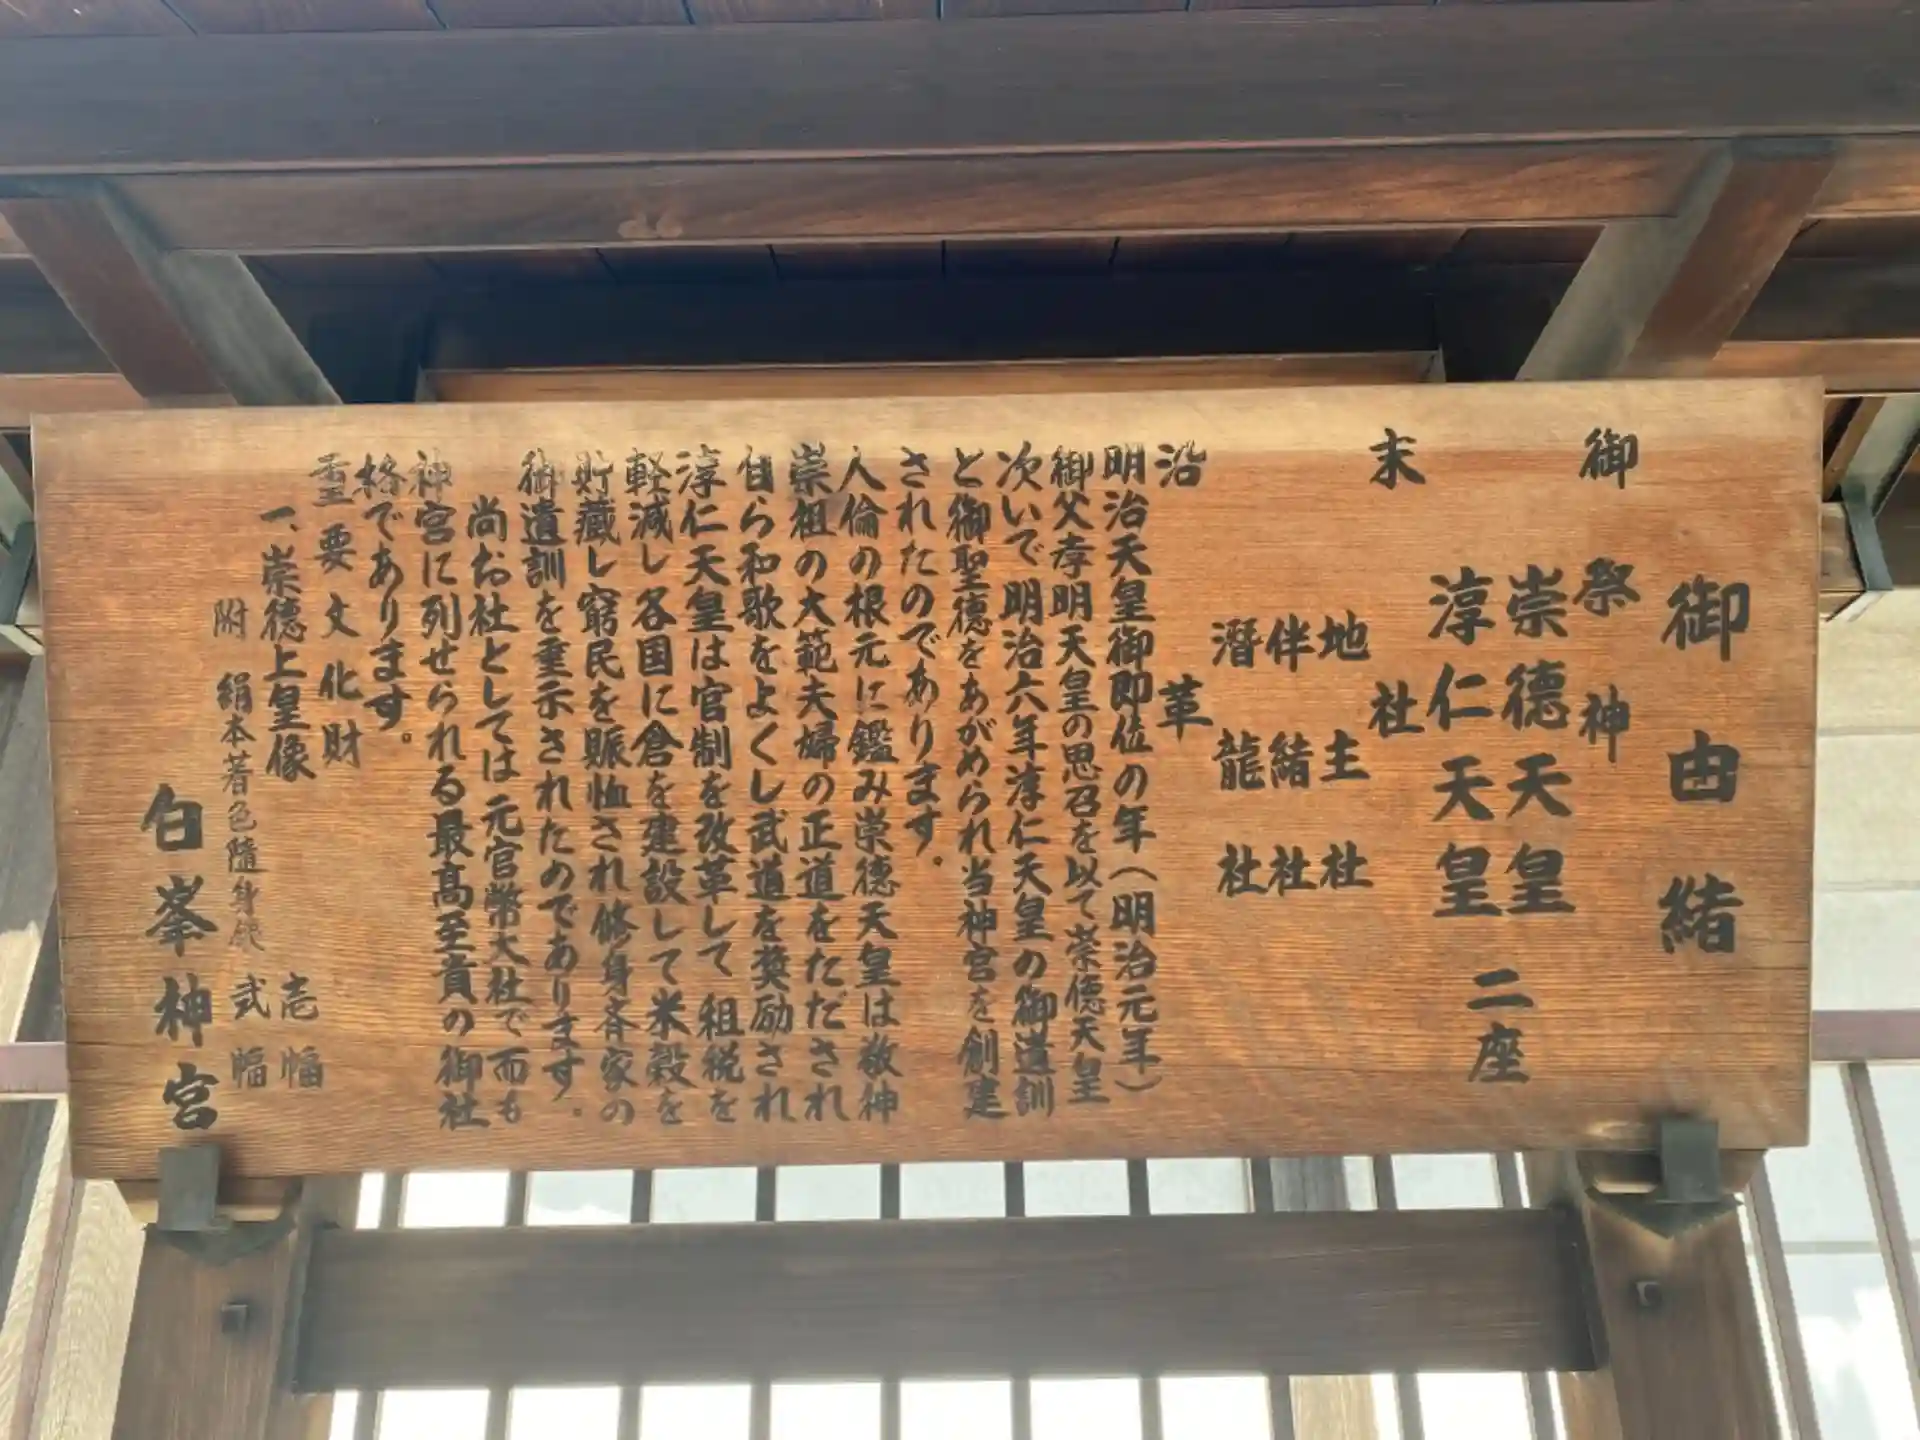 御由緒
御祭神
崇徳天皇
淳仁天皇
二座
末社
地主社
伴緒社
潜龍社
沿革
明治天皇御即位の年（明治元年）
御父孝明天皇の思召を以て崇徳天皇
次いで明治六年淳仁天皇の御遺訓
と御聖徳をあがめられ当神宮を創建
されたのであります。
人倫の根元に鑑み崇徳天皇は敬神
崇祖の大範夫婦の正道をただされ
自ら和歌をよくし武道を奨励され
淳仁天皇は官制を改革して租税を
軽減し各国に倉を建設して米穀を
貯蔵し窮民を賑恤され修身斉家の
御遺訓を垂示されたのであります。
尚お社としては元官幣大社で而も
神宮に列せられる最高至貴の御社
格であります。
重要文化財
一、崇徳上皇像 壱幅
附 絹本著色隨身 弐幅
白峯神宮